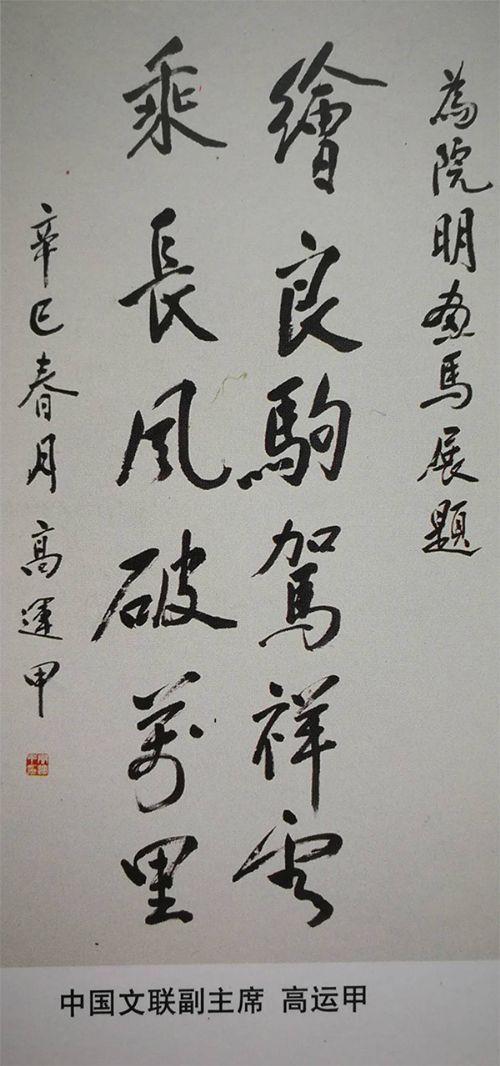 為院明画馬展題
繪良駒駕祥雲
乘長风破萬里
辛巳春月 高運甲
中国文联副主席 高运甲